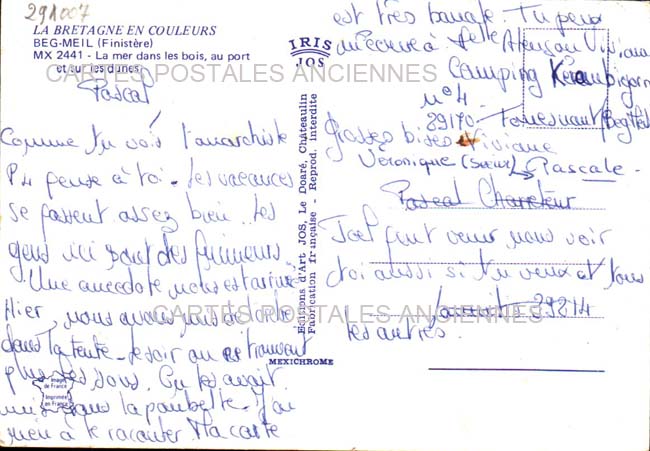 291007
LA BRETAGNE EN COULEURS
BEG-MEIL (Finistère)
MX 2441 - La mer dans les bois, au port
et sur les dunes
CARTES POSTALES ANCIENNES
Pascal
Comme tu vois l'anarchiste
P4 pense à toi. Les vacances
se passent assez bien. Les
gens ici sont des frimeurs.
Une anecdote nous est arrivée
Hier, nous avons
dans la tente. le soir on
plus les sous. On les avait
mis dans la poubelle. J'ai
rien à te raconter. Ma carte
Images de France
Imprimée en France
IRIS
JOS
Editions d'Art JOS, Le Doaré, Châteaulin
Publication française - Reprod. interdite
MEXICHROME
est très banale. Tu peux
m'écrire à
Camping
n° 4
29170
Grosses bises Viviane
Véronique (sœur) Pascale
Pascal
Joël peut venir nous voir
toi aussi si tu veux et tous
29214
les autres.
CARTES POSTALES ANCIENNES